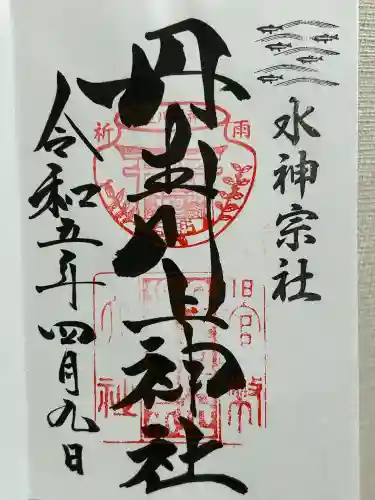 水神宗社
丹生川上神社
令和五年四月九日
雨
祈
旧官幣
社